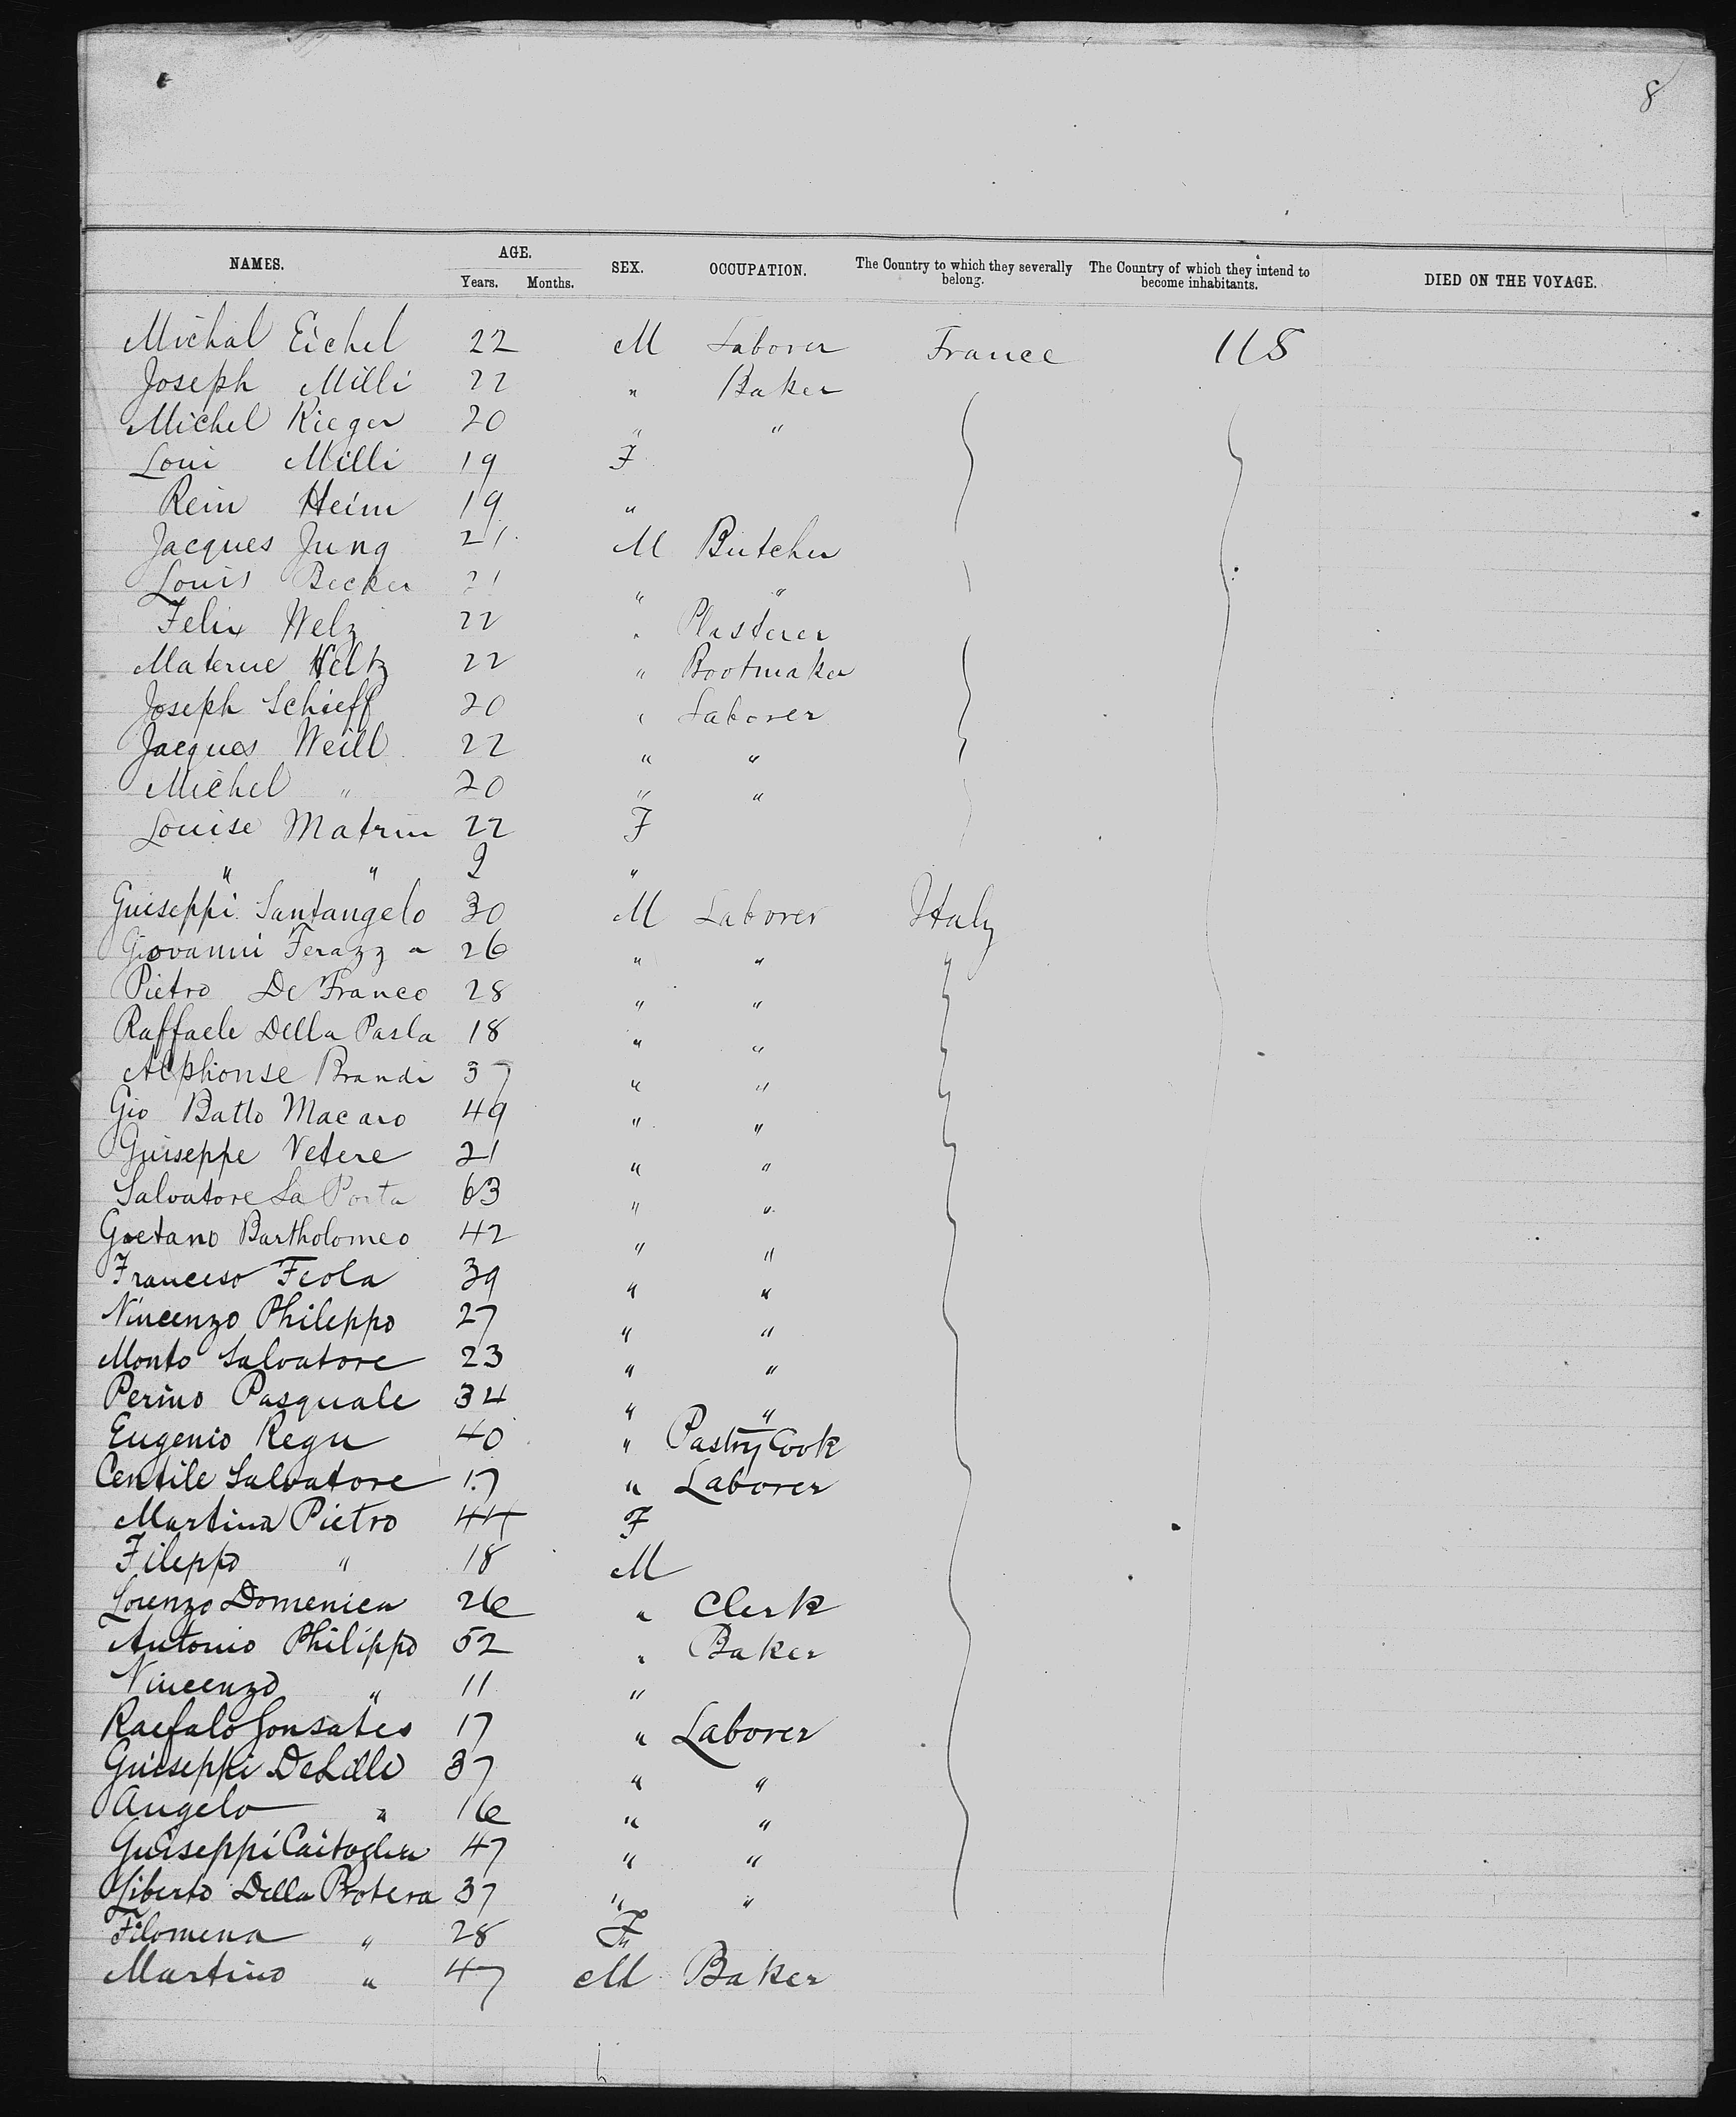 8
NAMES. AGE. Years. Months. SEX. OCCUPATION. The Country to which they severally belong. The Country of which they intend to become inhabitants. DIED ON THE VOYAGE.
Michal Eichel 22 M Laborer France US
Joseph Milli 22 " Baker
Michel Rieger 20 " "
Loui Milli 19 F
Rein Heim 19 "
Jacques Jung 21 M Butcher
Louis Becker 21 " "
Felix Welz 22 " Plasterer
Materne Weltz 22 " Bootmaker
Joseph Schieff 20 " Laborer
Jacques Weill 22 " "
Michel " 20 " "
Louise Matrin 22 F
" " 2 "
Guiseppi Santangelo 30 M Laborer Italy
Giovanni Ferazza 26 " " "
Pietro De Franco 28 " "
Raffaele Della Pasla 18 " "
Alphonse Brandi 37 " "
Gio Batto Macaro 49 " "
Guiseppe Vetere 21 " "
Salvatore La Porta 63 " "
Gaetano Bartholomeo 42 " "
Franceso Feola 39 " "
Vincenzo Phileppo 27 " "
Monto Salvatore 23 " "
Perino Pasquale 34 " "
Eugenio Regu 40 " Pastry Cook
Centile Salvatore 17 " Laborer
Martina Pietro 44 F
Fileppo " 18 M
Lorenzo Domenica 26 " Clerk
Antonio Philippo 52 " Baker
Vincenzo " 11 "
Raefalo Gonsales 17 " Laborer
Guiseppi DeLillo 37 " "
Angelo " 16 " "
Guiseppi 47 " "
Liberto Della Protera 37 " "
Filomena " 28 F
Martino " 47 M Baker